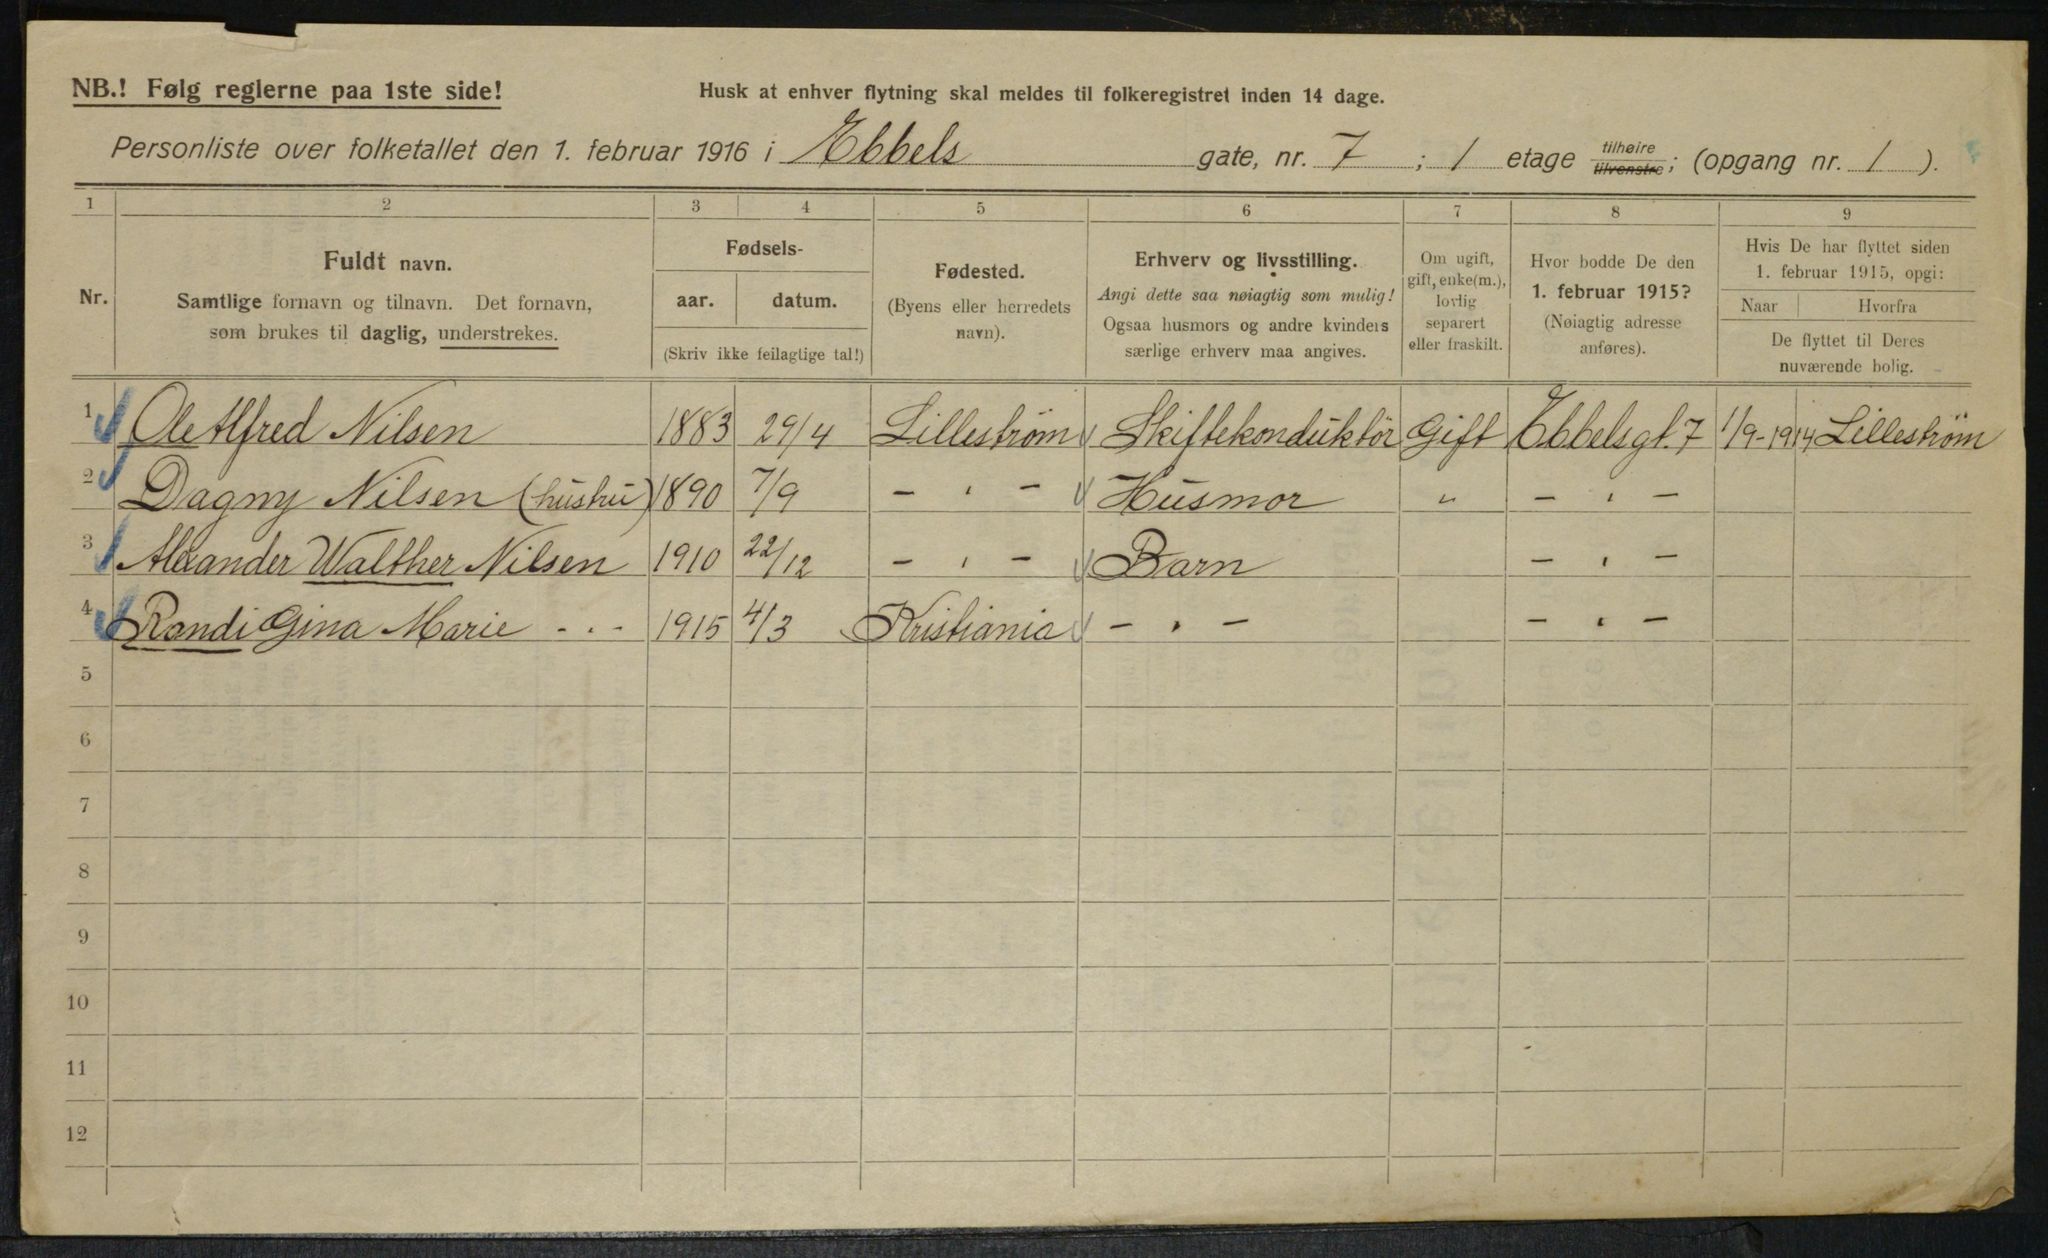 NB.! Følg reglerne paa 1ste side!
Husk at enhver flytning skal meldes til folkeregistret inden 14 dage.
Personliste over folketallet den 1. februar 1916 i Ebbels gate, nr. 7 ; 1 etage tilhøire tilvenstre; (opgang nr. 1 ).
1 2 3 4 5 6 7 8 9
Nr.
Fuldt navn.
Samtlige fornavn og tilnavn. Det fornavn,
som brukes til daglig, understrekes.
Fødsels-
aar. datum.
(Skriv ikke feilagtige tal!)
Fødested.
(Byens eller herredets
navn).
Erhverv og livsstilling.
Angi dette saa nøiagtig som mulig!
Ogsaa husmors og andre kvinders
særlige erhverv maa angives.
Om ugift,
gift, enke(m.),
lovlig
separert
eller fraskilt.
Hvor bodde De den
1. februar 1915?
(Nøiagtig adresse
anføres).
Hvis De har flyttet siden
1. februar 1915, opgi:
Naar Hvorfra
De flyttet til Deres
nuværende bolig.
1 Ole Alfred Nilsen 1883 29/4 Lillestrøm Skiftekonduktör Gift Ebbelsgt. 7 1/9-1914 Lillestrøm
2 Dagny Nilsen (hustru) 1890 7/9 – " – Husmor " – " –
3 Alexander Walther Nilsen 1910 22/12 – " – Barn – " –
4 Randi Gina Marie - " - 1915 4/3 Kristiania – " – – " –
5
6
7
8
9
10
11
12